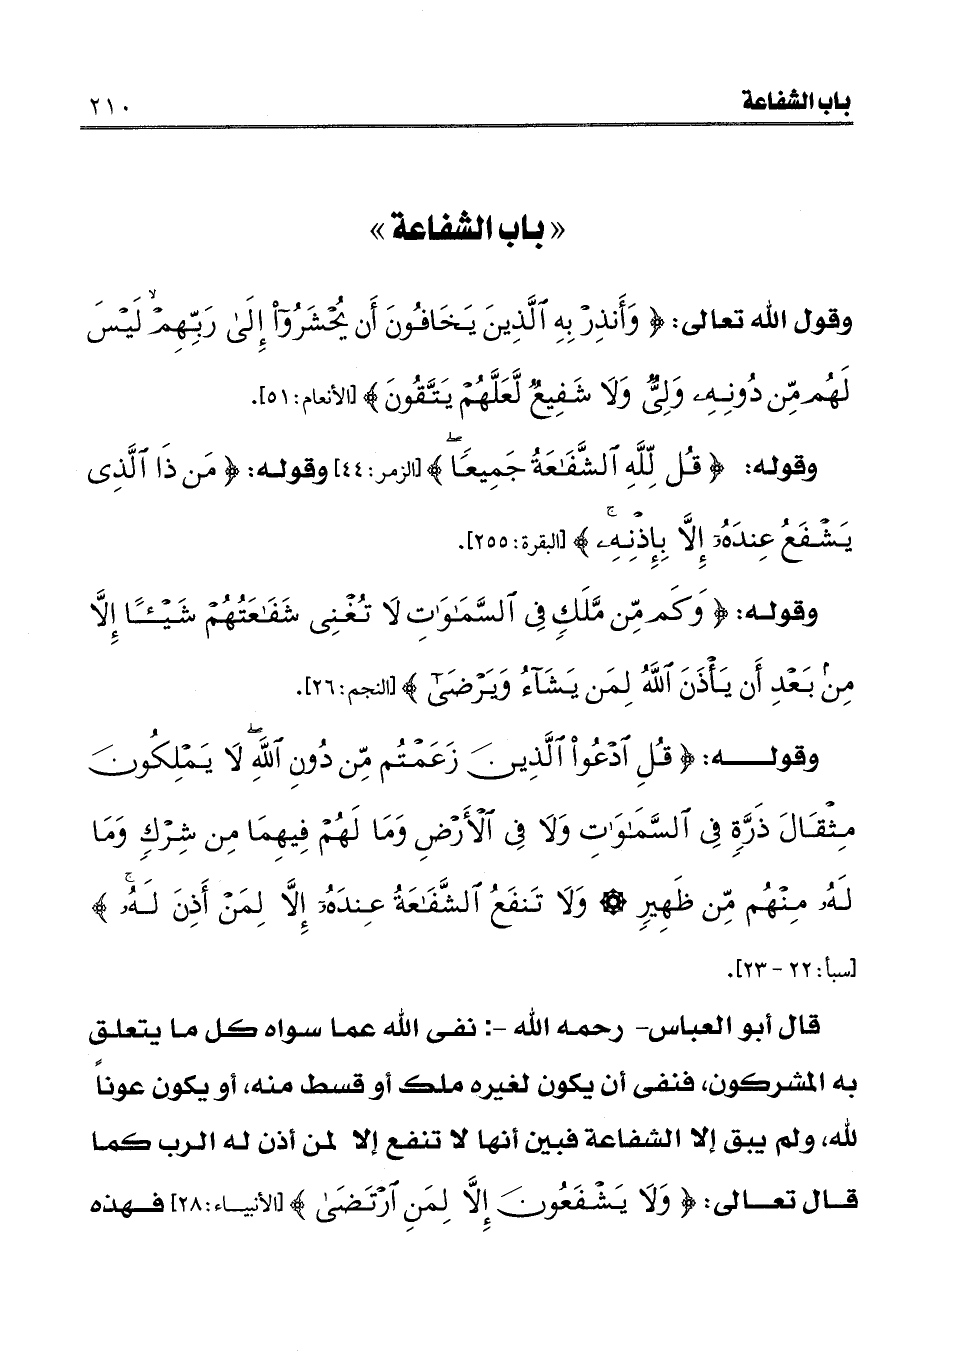 باب الشفاعة
٢١٠
«باب الشفاعة»
وقول الله تعالى: ﴿ وَأَنذِرْ بِهِ ٱلَّذِينَ يَخَافُونَ أَن يُحْشَرُوٓاْ إِلَىٰ رَبِّهِمْ ۙ لَيْسَ
لَهُم مِّن دُونِهِۦ وَلِىٌّ وَلَا شَفِيعٌ لَّعَلَّهُمْ يَتَّقُونَ ﴾ [الأنعام:٥١].
وقوله: ﴿ قُل لِّلَّهِ ٱلشَّفَـٰعَةُ جَمِيعًا ۖ ﴾ [الزمر:٤٤] وقوله: ﴿ مَن ذَا ٱلَّذِى
يَشْفَعُ عِندَهُۥٓ إِلَّا بِإِذْنِهِۦ ۚ ﴾ [البقرة:٢٥٥].
وقوله: ﴿ وَكَم مِّن مَّلَكٍ فِى ٱلسَّمَـٰوَٰتِ لَا تُغْنِى شَفَـٰعَتُهُمْ شَيْـًٔا إِلَّا
مِنۢ بَعْدِ أَن يَأْذَنَ ٱللَّهُ لِمَن يَشَآءُ وَيَرْضَىٰٓ ﴾ [النجم:٢٦].
وقولـــه: ﴿ قُلِ ٱدْعُواْ ٱلَّذِينَ زَعَمْتُم مِّن دُونِ ٱللَّهِ ۖ لَا يَمْلِكُونَ
مِثْقَالَ ذَرَّةٍ فِى ٱلسَّمَـٰوَٰتِ وَلَا فِى ٱلْأَرْضِ وَمَا لَهُمْ فِيهِمَا مِن شِرْكٍ وَمَا
لَهُۥ مِنْهُم مِّن ظَهِيرٍ ۞ وَلَا تَنفَعُ ٱلشَّفَـٰعَةُ عِندَهُۥٓ إِلَّا لِمَنْ أَذِنَ لَهُۥ ۚ ﴾
[سبأ:٢٢ - ٢٣].
قال أبو العباس- رحمه الله -: نفى الله عما سواه كل ما يتعلق
به المشركون، فنفى أن يكون لغيره ملك أو قسط منه، أو يكون عوناً
لله، ولم يبق إلا الشفاعة فبين أنها لا تنفع إلا لمن أذن له الرب كما
قال تعالى: ﴿ وَلَا يَشْفَعُونَ إِلَّا لِمَنِ ٱرْتَضَىٰ ﴾ [الأنبياء:٢٨] فهذه